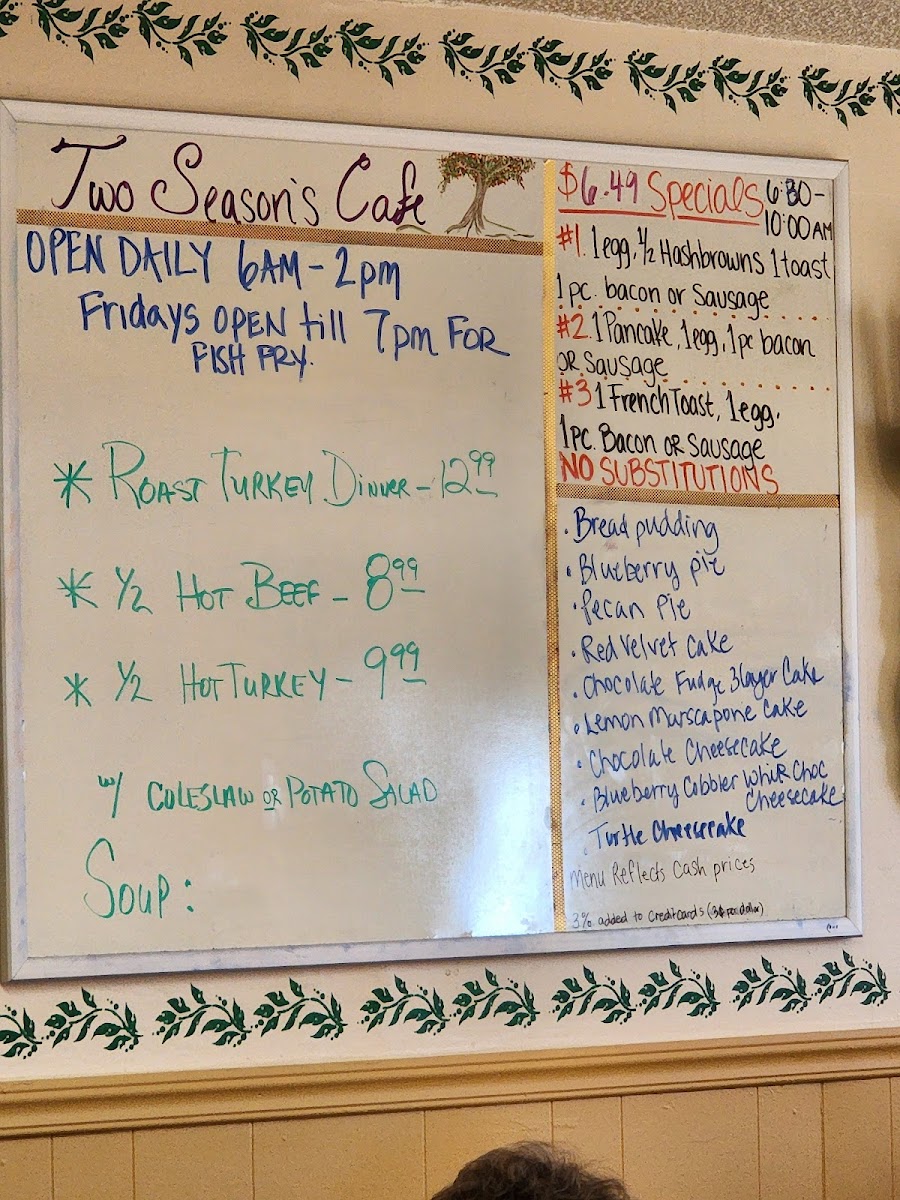 Two Season's Cafe
OPEN DAILY 6AM - 2pm
Fridays OPEN till 7pm FOR
FISH FRY.
* ROAST TURKEY DINNER - 12 99
* 1/2 HOT BEEF - 8 99
* 1/2 HOT TURKEY - 9 99
w/ COLESLAW OR POTATO SALAD
SOUP:
$6.49 Specials 6:30 -
10:00 AM
#1. 1 egg, 1/2 Hashbrowns 1 toast
1 pc. bacon or Sausage
#2. 1 Pancake, 1 egg, 1 pc bacon
OR Sausage
#3 1 French Toast, 1 egg,
1 pc. Bacon OR Sausage
NO SUBSTITUTIONS
· Bread pudding
· Blueberry pie
· Pecan Pie
· Red Velvet Cake
· Chocolate Fudge 3layer Cake
· Lemon Marscapone Cake
· Chocolate Cheesecake
· Blueberry Cobbler Choc
Cheesecake
· Turtle Cheesecake
Menu Reflects Cash prices
3% added to Credit Cards (3¢ per dollar)